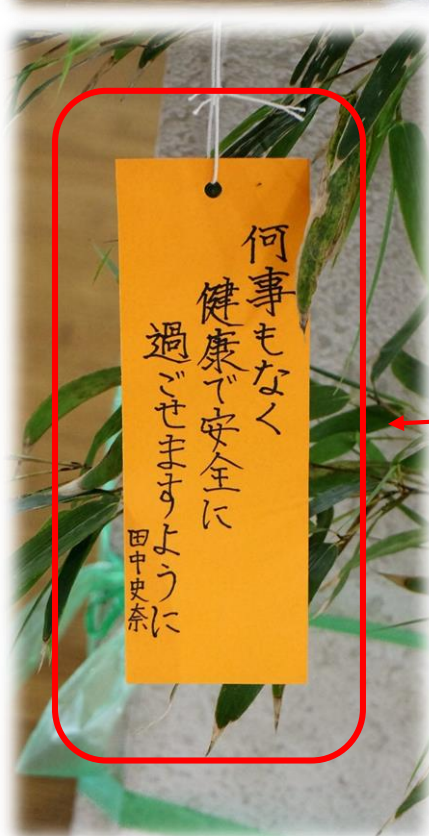 何事もなく
健康で安全に
過ごせますように
田中史奈